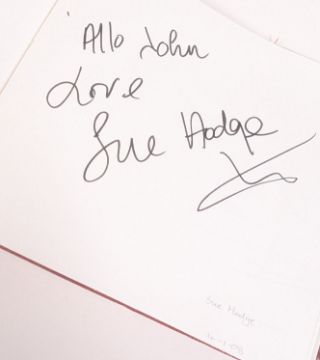 Allo John
Love
Sue Hodge
Sue Hodge